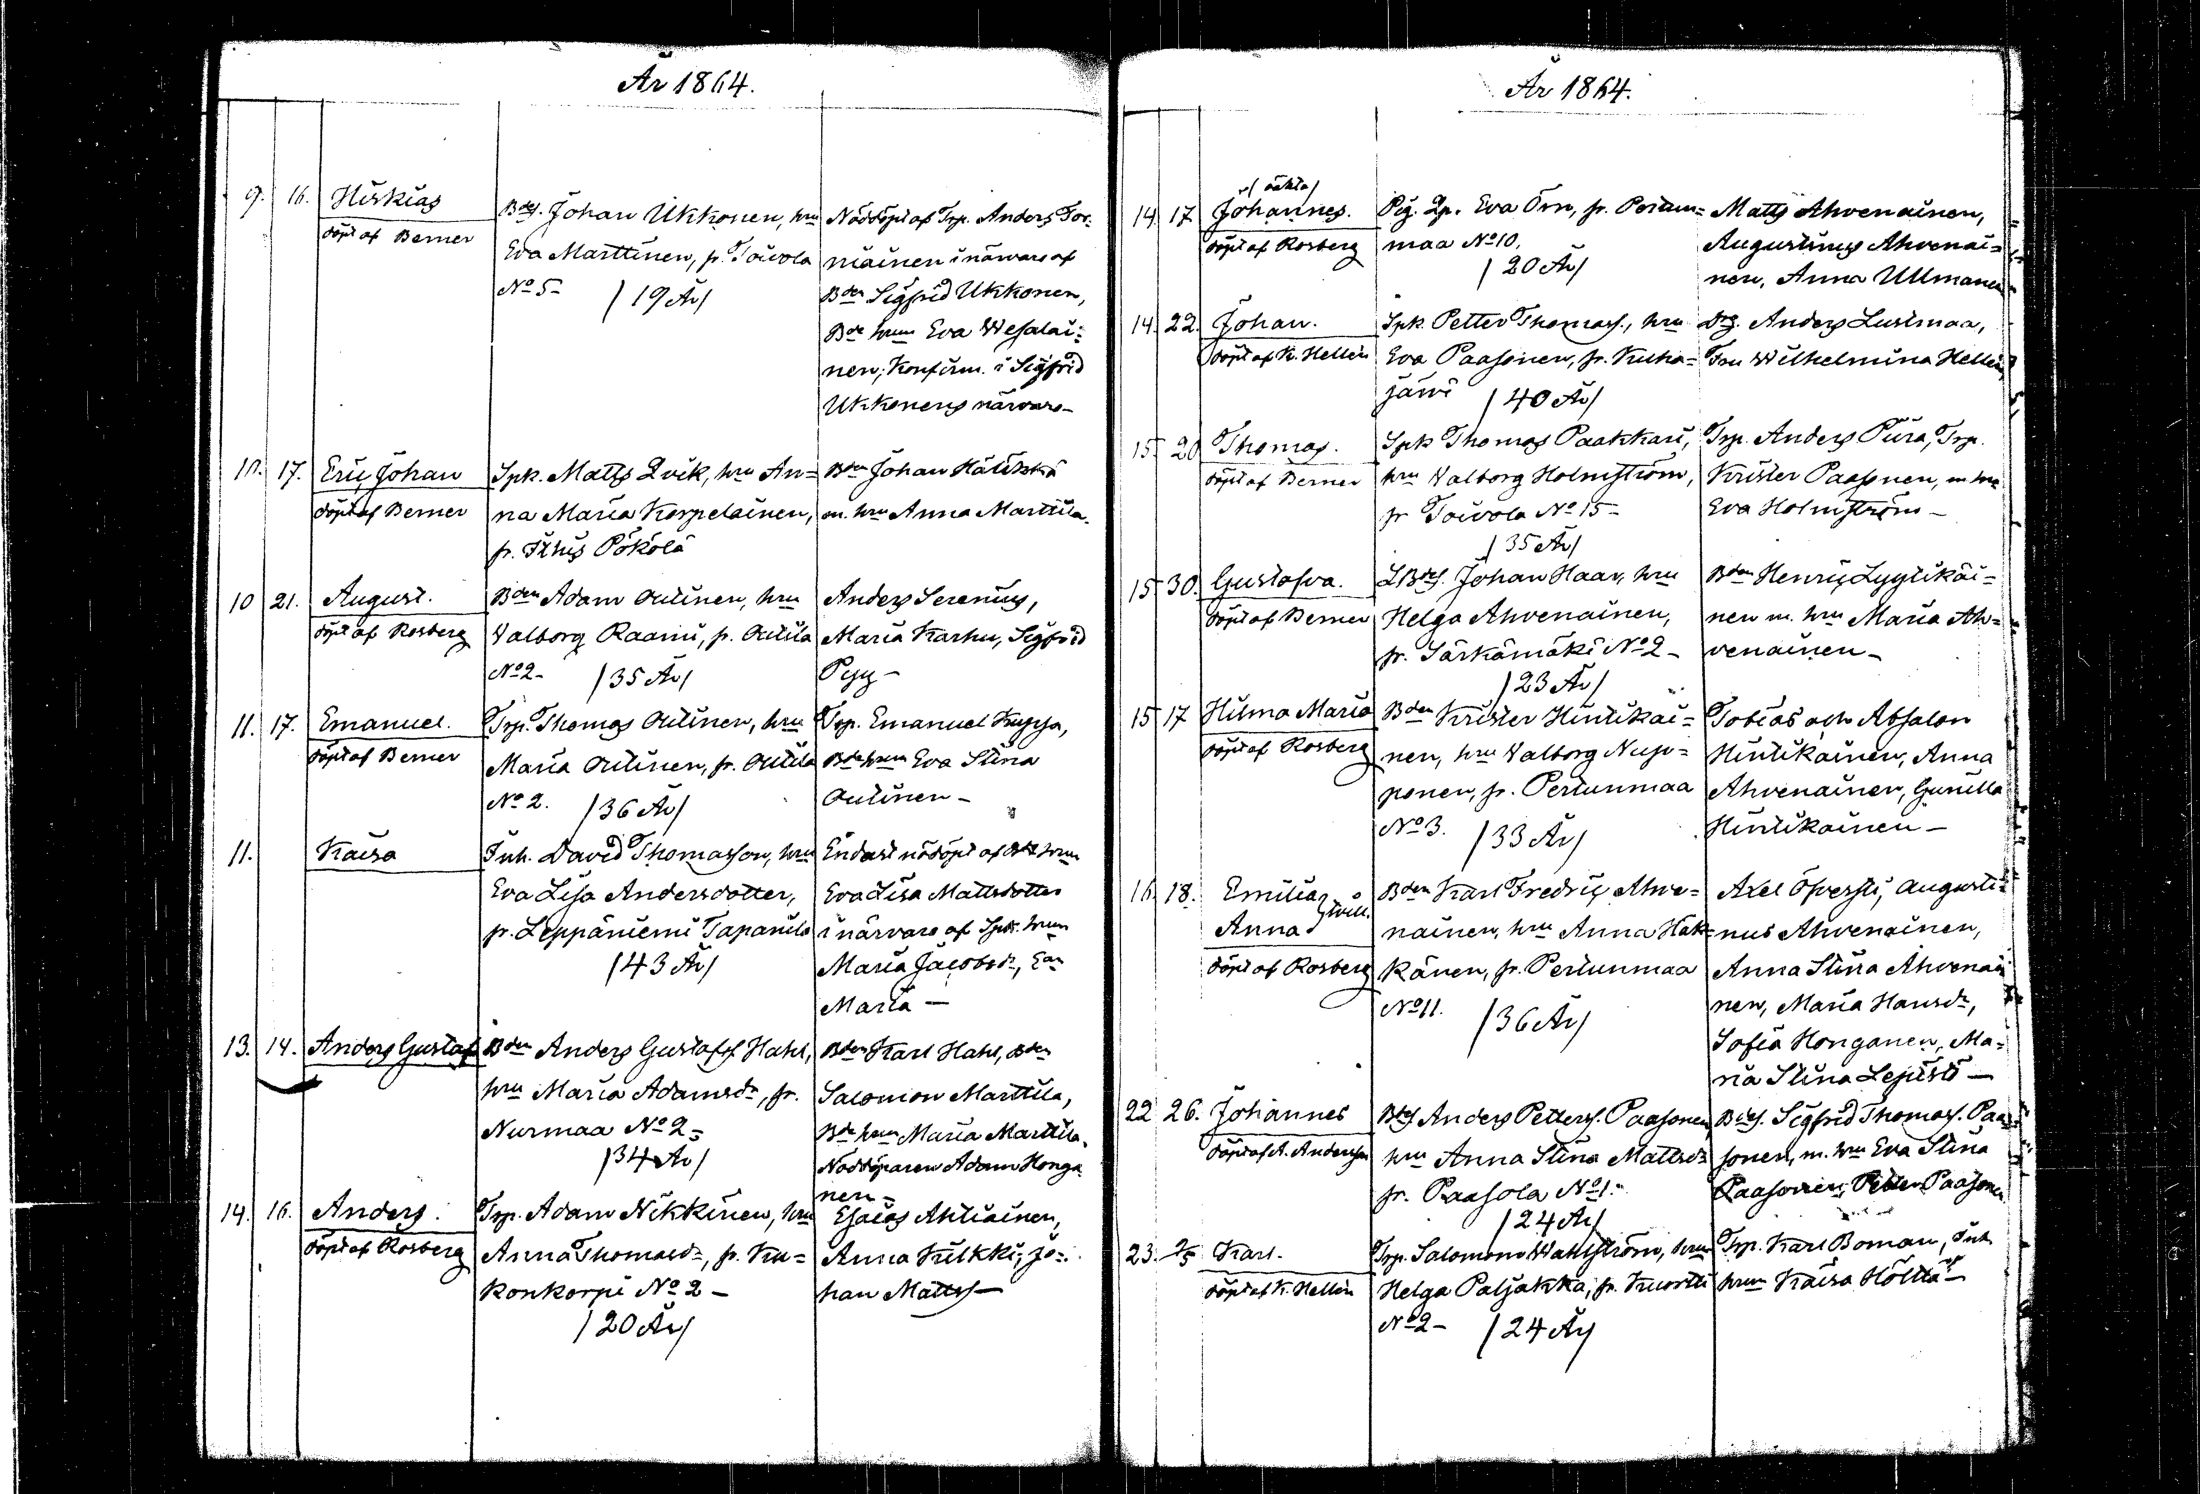 År 1864.
9. 16. Hiskias
döpt af Berner
Bdes. Johan Ukkonen, hru
Eva Marttinen, fr. Toivola
No 5 –
/19 År/
Nöddöpt af Trp. Anders Tor-
niainen i närvaro af
Bden Sigfrid Ukkonen,
Bde hrun Eva Wesalai-
nen; Konfirm. i Sigfrid
Ukkonens närvaro –
10. 17. Eric Johan
döpt af Berner
Spk. Matts Qvik, hru An-
na Maria Korpelainen,
fr. Pökölä
Bden Johan
m. hru Anna Marttila.
10 21. August.
döpt af Rosberg
Bden Adam Outinen, hru
Valborg Raami, fr. Outila
No 2 –
/35 År/
Anders Serenius,
Maria Karhu, Sigfrid
Pyy –
11. 17. Emanuel.
döpt af Berner
Trp. Thomas Outinen, hru
Maria Outinen, fr. Outila
No 2.
/36 År/
Trp. Emanuel
Bde hrun Eva Stina
Outinen –
11. Kaisa
Inh. David Thomasson, hru
Eva Lisa Andersdotter,
fr. Leppäniemi Tapanila
/43 År/
Endast nöddöpt af hrun
Eva Lisa Mattsdotter
i närvaro af Spk. hrun
Maria Jacobsdr,
Maria –
13. 14. Anders Gustaf
Bden Anders Gustafsf Hahl,
hru Maria Adamsdr, fr.
Nurmaa No 2 –
/34 År/
Bden Karl Hahl, Bden
Salomon Marttila,
Bde hrun Maria Marttila.
Nöddöparen Adam Honga
nen –
14. 16. Anders.
döpt af Rosberg
Trp. Adam Nikkinen, hru
Anna Thomasdr, fr. Ku-
konkorpi No 2 –
/20 År/
Esaias Ahtiainen,
Anna Kilkki, Jo-
han Matts –
År 1864.
/oäkta/
14 17 Johannes.
döpt af Rosberg
Pig. Qp. Eva Örn, fr. Pertun-
maa No 10.
/20 År/
Matts Ahvenainen,
Augustinus Ahvenai-
nen, Anna Ullmanen
14. 22. Johan.
döpt af K. Hellén
Spk. Petter Thomass., hru
Eva Paasonen, fr. Kuha-
järvi
/40 År/
Drg. Anders Lustmaa,
Fru Wilhelmina Hellén,
15 20 Thomas.
döpt af Berner
Spk Thomas Paakkari,
hru Valborg Holmström,
fr Toivola No 15 –
/35 År/
Trp. Anders Pura, Trp.
Krister Paasonen, m hru
Eva Holmström –
15 30. Gustafva.
döpt af Berner
LBdes. Johan Haar, hru
Helga Ahvenainen,
fr. Särkämäki No 2 –
/23 År/
Bden Henric Lyytikäi-
nen m. hru Maria Ah-
venainen –
15 17 Hilma Maria
döpt af Rosberg
Bden Krister Hintikai-
nen, hru Valborg Nup-
ponen, fr. Pertunmaa
No 3.
/33 År/
Tobias och Absalon
Hintikainen, Anna
Ahvenainen, Gunilla
Hintikainen –
16. 18. Emilia
Anna
tvill.
döpt af Rosberg
Bden Karl Fredric Ahve-
nainen, hru Anna Hak-
känen, fr. Pertunmaa
No 11.
/36 År/
Axel Öfversti, Augusti-
nus Ahvenainen,
Anna Stina Ahvenai
nen, Maria Hansdr,
Sofia Honganen, Ma-
ria Stina Lepistö –
22 26. Johannes
döpt af A. Andersin
Bdes. Anders Petters. Paasonen
hru Anna Stina Mattsdr
fr. Paasola No 1. –
/24 År/
Bdes. Sigfrid Thomass. Paa-
sonen, m. hru Eva Stina
Paasonen; Petter Paasonen
23. 2/5 Karl.
döpt af K. Hellén
Trp. Salomon Wahlström, hru
Helga Paljakka, fr. Kuortti
No 2 –
/24 År/
Trp. Karl Boman, Inh
hrun Kaisa Hölttä –